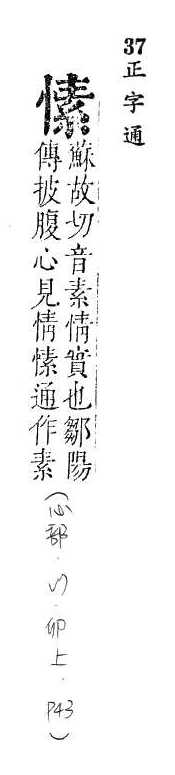 37正字通
愫
蘇故切音素情實也鄒陽
傳披腹心見情愫通作素
(心部.
卯上.P43)